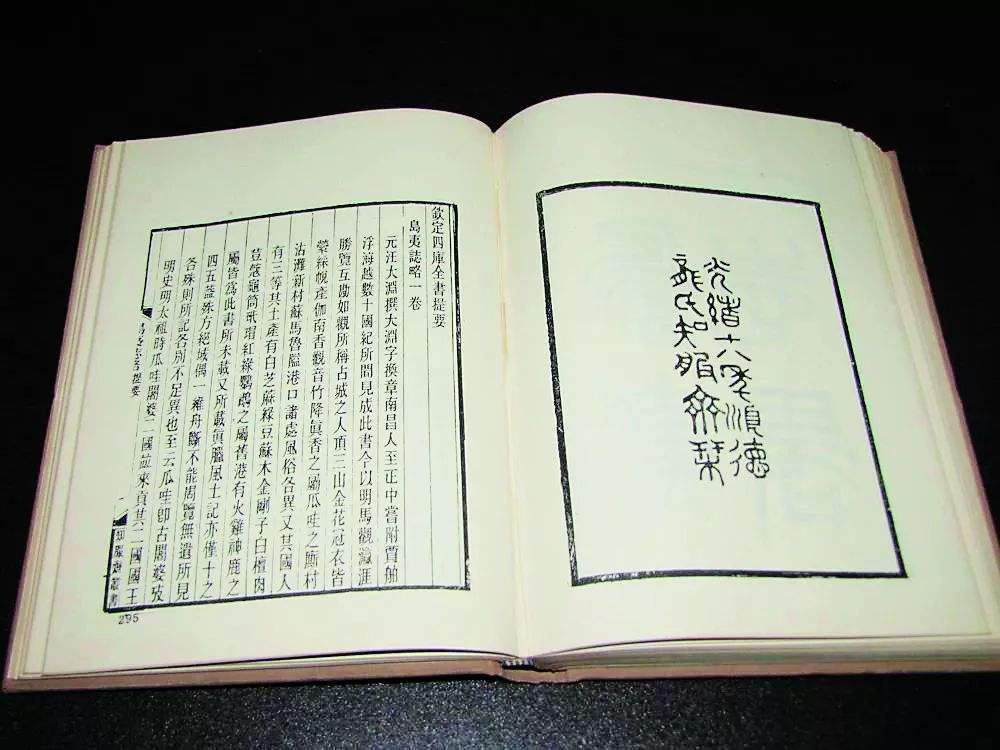 光緒十六年順德
龍氏知服齋栞
欽定四庫全書提要
島夷誌略一卷
元汪大淵撰大淵字換章南昌人至正中嘗附賈舶
浮海越數十國紀所聞見成此書今以明馬觀瀛涯
勝覽互勘如觀所稱占城之人頂三山金花冠衣皆
縈絲帨產伽南香觀音竹降眞香之屬瓜哇之厮村
沽灘新村蘇馬魯隘港口諸處風俗各異又其國人
有三等其土產有白芝麻綠豆蘇木金剛子白檀肉
荳蔻龜筒玳瑁紅綠鸚鵡之屬舊港有火雞神鹿之
屬皆爲此書所未載又所載眞臘風土記亦僅十之
四五葢殊方絕域偶一維舟斷不能周覽無遺所見
各殊則所記各別不足異也至云瓜哇卽古闍婆攷
明史明太祖時瓜哇闍婆二國竝來貢其二國國王
島夷誌略提要
一
知服齋叢書
295